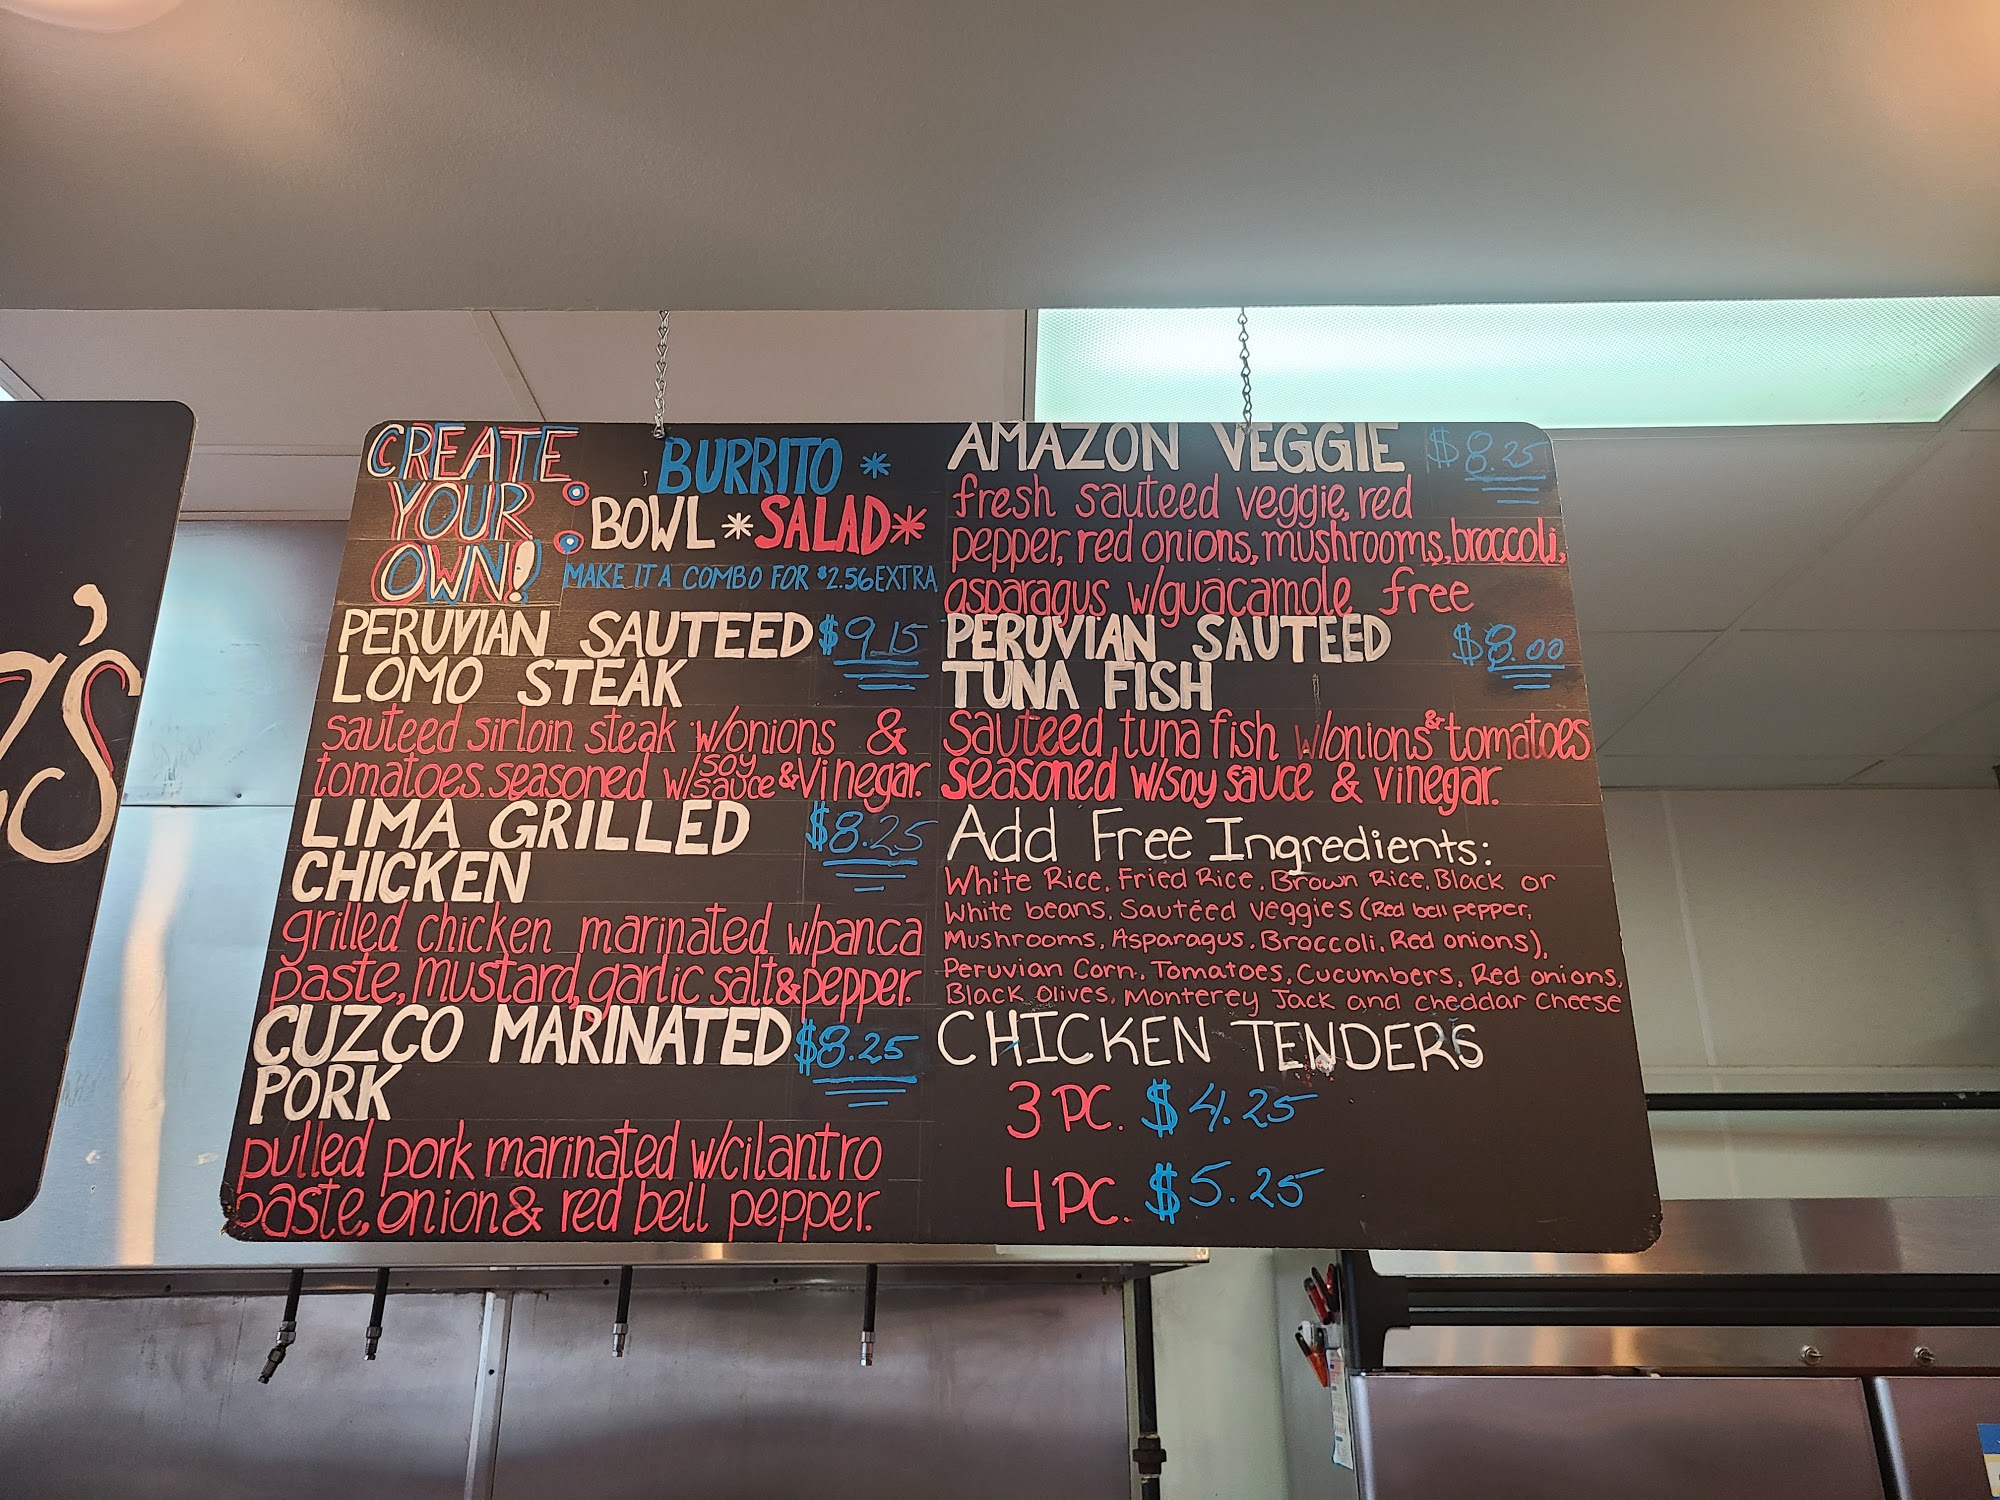 CREATE YOUR OWN!
BURRITO *
BOWL * SALAD *
MAKE IT A COMBO FOR $2.56 EXTRA
PERUVIAN SAUTEED $9.15
LOMO STEAK
sauteed sirloin steak w/onions &
tomatoes. seasoned w/soy sauce & vinegar.
LIMA GRILLED $8.25
CHICKEN
grilled chicken marinated w/panca
paste, mustard, garlic salt & pepper.
CUZCO MARINATED $8.25
PORK
pulled pork marinated w/cilantro
paste, onion & red bell pepper.
AMAZON VEGGIE $8.25
fresh sauteed veggie, red
pepper, red onions, mushrooms, broccoli,
asparagus w/guacamole free
PERUVIAN SAUTEED $8.00
TUNA FISH
Sauteed tuna fish w/onions & tomatoes
seasoned w/soy sauce & vinegar.
Add Free Ingredients:
White Rice, Fried Rice, Brown Rice, Black or
White beans, Sautéed veggies (Red bell pepper,
Mushrooms, Asparagus, Broccoli, Red onions),
Peruvian Corn, Tomatoes, Cucumbers, Red onions,
Black Olives, Monterey Jack and cheddar Cheese
CHICKEN TENDERS
3 PC. $4.25
4 PC. $5.25